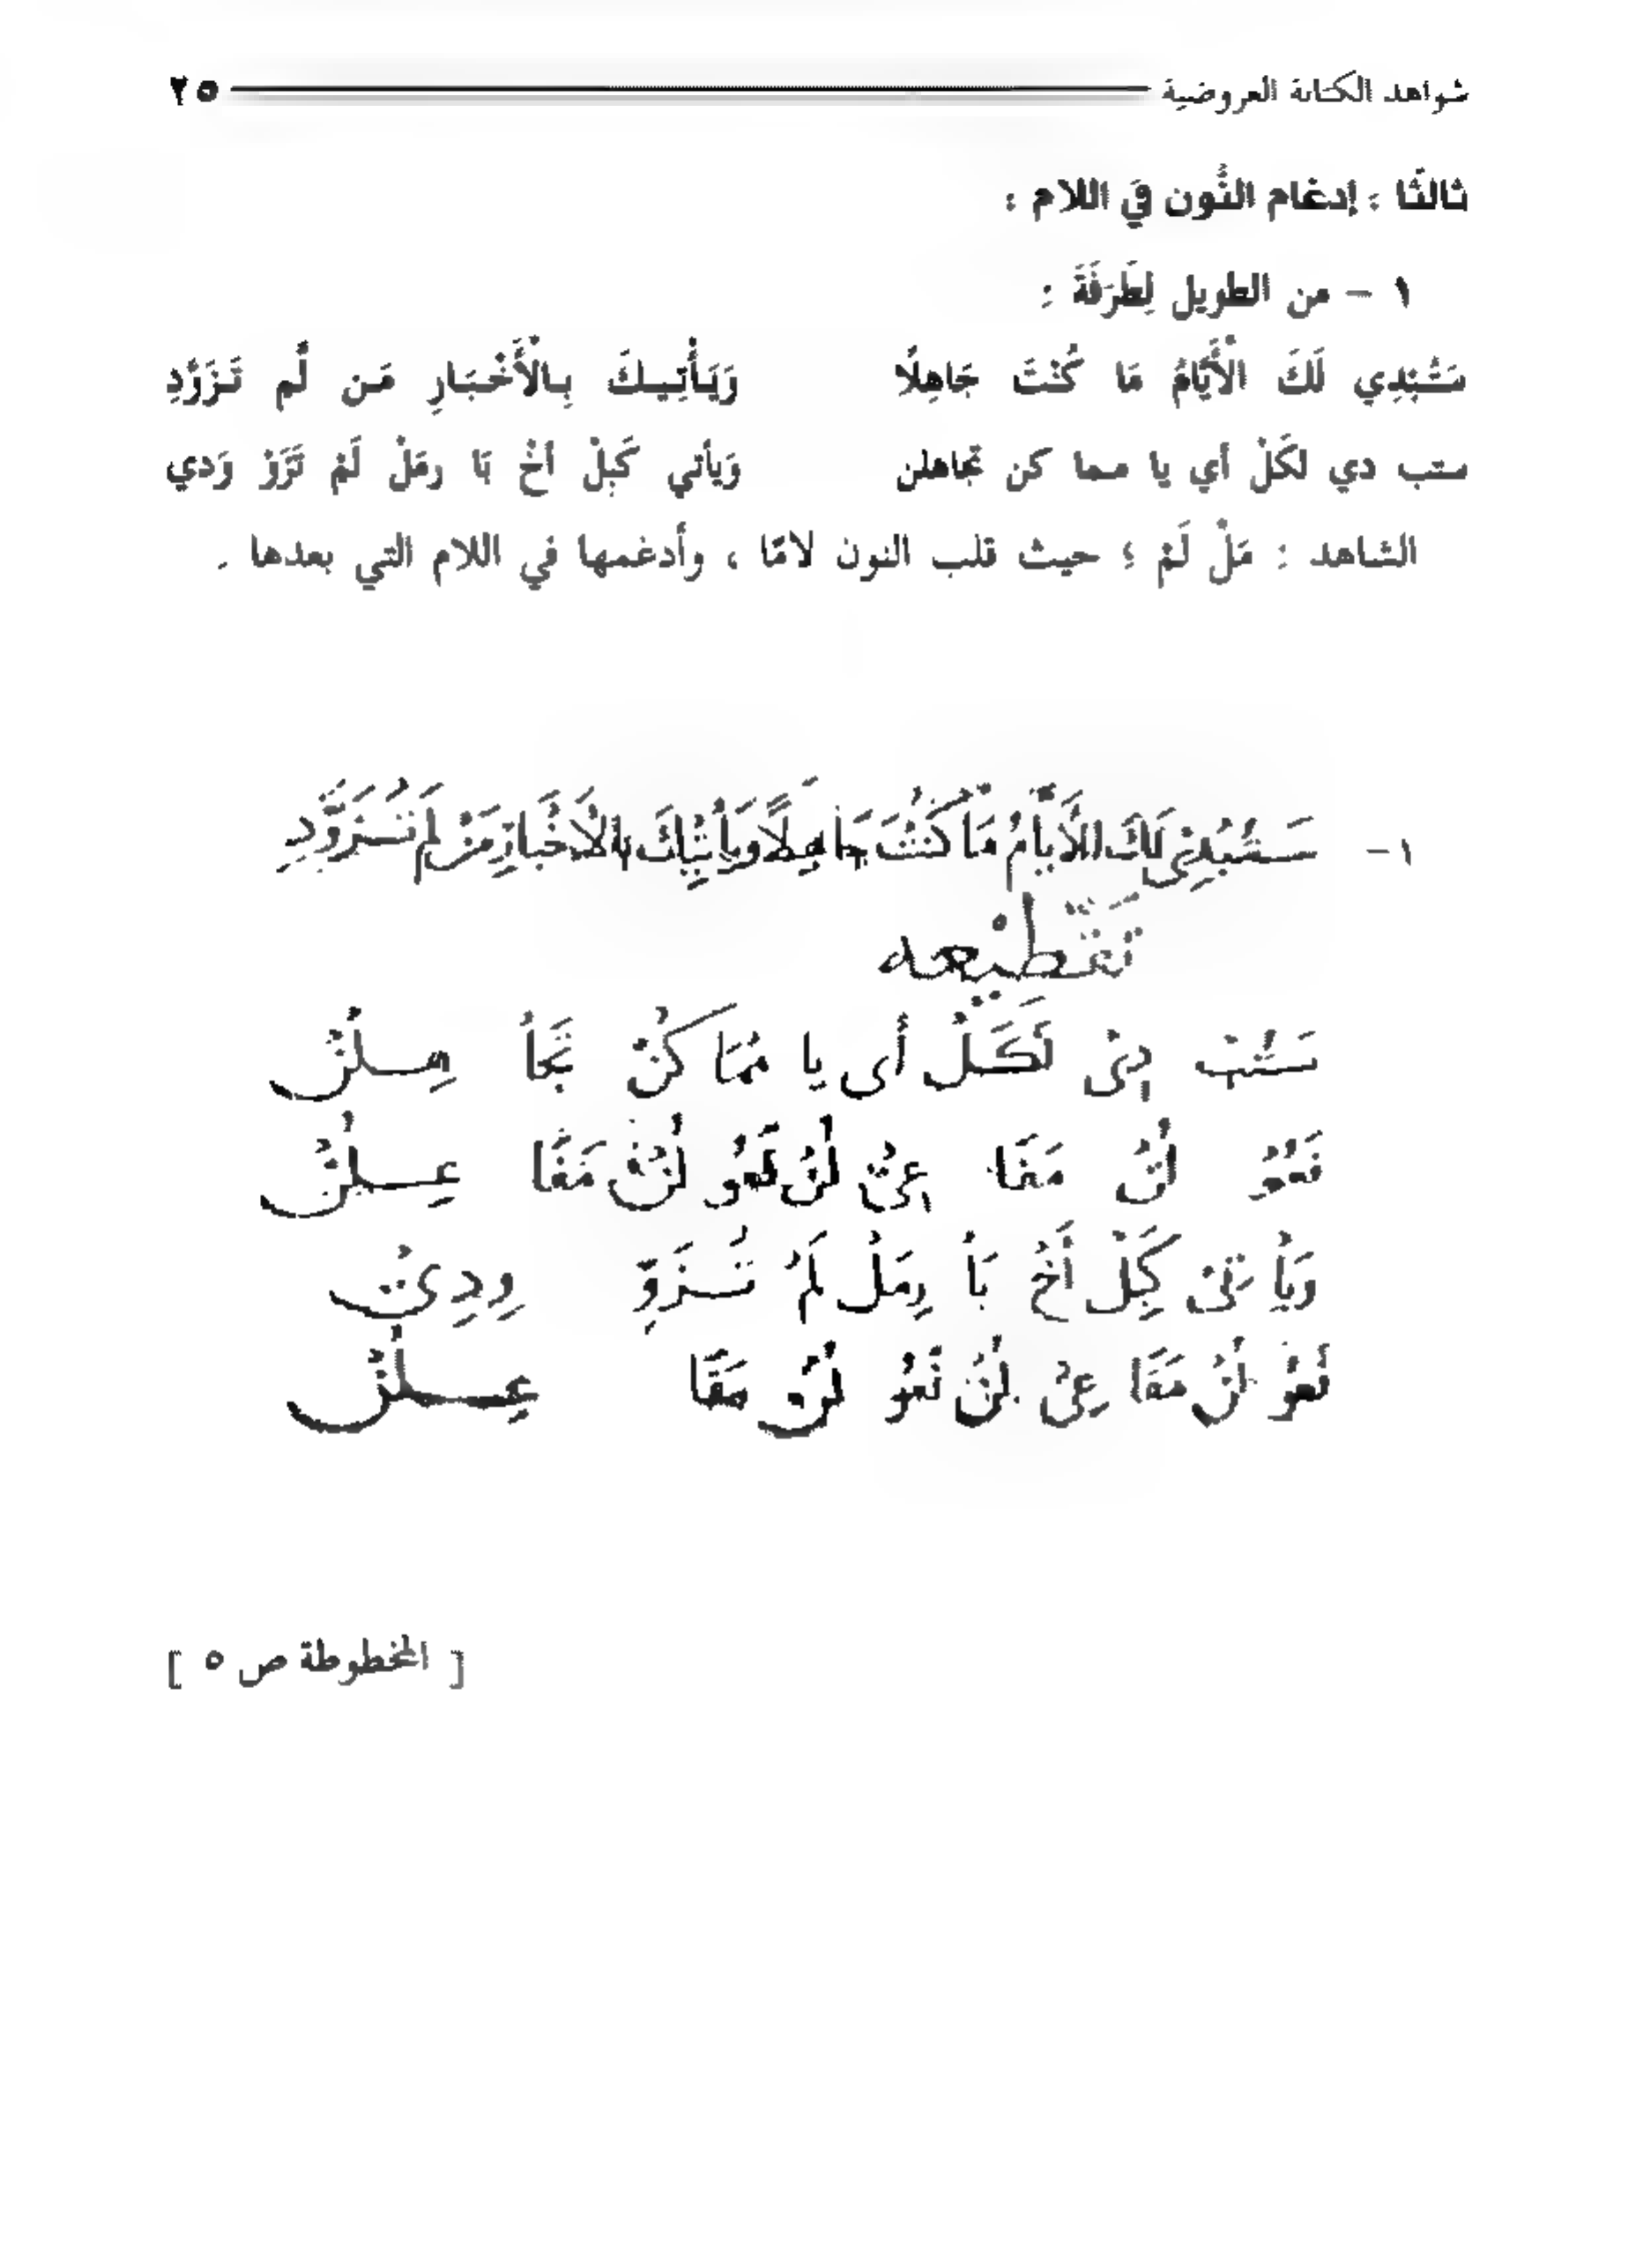 شواهد الكتابة العروضية ٢٥
ثالثًا : إدغام النُّون في اللام :
١ - من الطويل لِطَرَفَةَ :
سَتُبْدِي لَكَ الْأَيَّامُ مَا كُنْتَ جَاهِلًا وَيَأْتِيكَ بِالْأَخْبَارِ مَن لَّم تُزَوَّدِ
ستب دي لكَلْ أي يا مما كن تجاهلن وَيأتي كَبِلْ أخْ بَا رمَلْ لَمْ تُزَوْ وَدي
الشاهد : مَلْ لَمْ ؛ حيث قلب النون لامًا ، وأدغمها في اللام التي بعدها .
١- سَتُبْدِىْ لَكَ الْأَيَّامُ مَا كُنْتَ جَاهِلًا وَيَأْتِيْكَ بِالْأَخْبَارِ مَنْ لَمْ تُزَوَّدِ
تَقْطِيْعه
سَتُبْ دِىْ لَكَلْ أى يا مُمَا كُنْ تَجَا هِلُنْ
فَعُوْ لُنْ مَفَا عِىْ لُنْ فَعُو لُنْ مَفَا عِلُنْ
وَيَأْ تِىْ كَبِلْ أَخْ بَا رِمَلْ لَمْ تُزَوِ وِدِىْ
فَعُوْ لُنْ مَفَا عِىْ لُنْ فَعُو لُنْ مَفَا عِلُنْ
[ المخطوطة ص ٥ ]